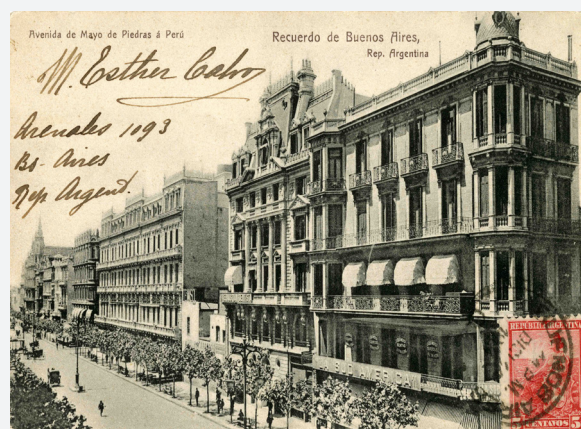 Avenida de Mayo de Piedras á Perú
Recuerdo de Buenos Aires,
Rep. Argentina
M. Esther Calvo
Arenales 1093
Bs. Aires
Rep Argent.
REPUBLICA ARGENTINA
5 CENTAVOS 5